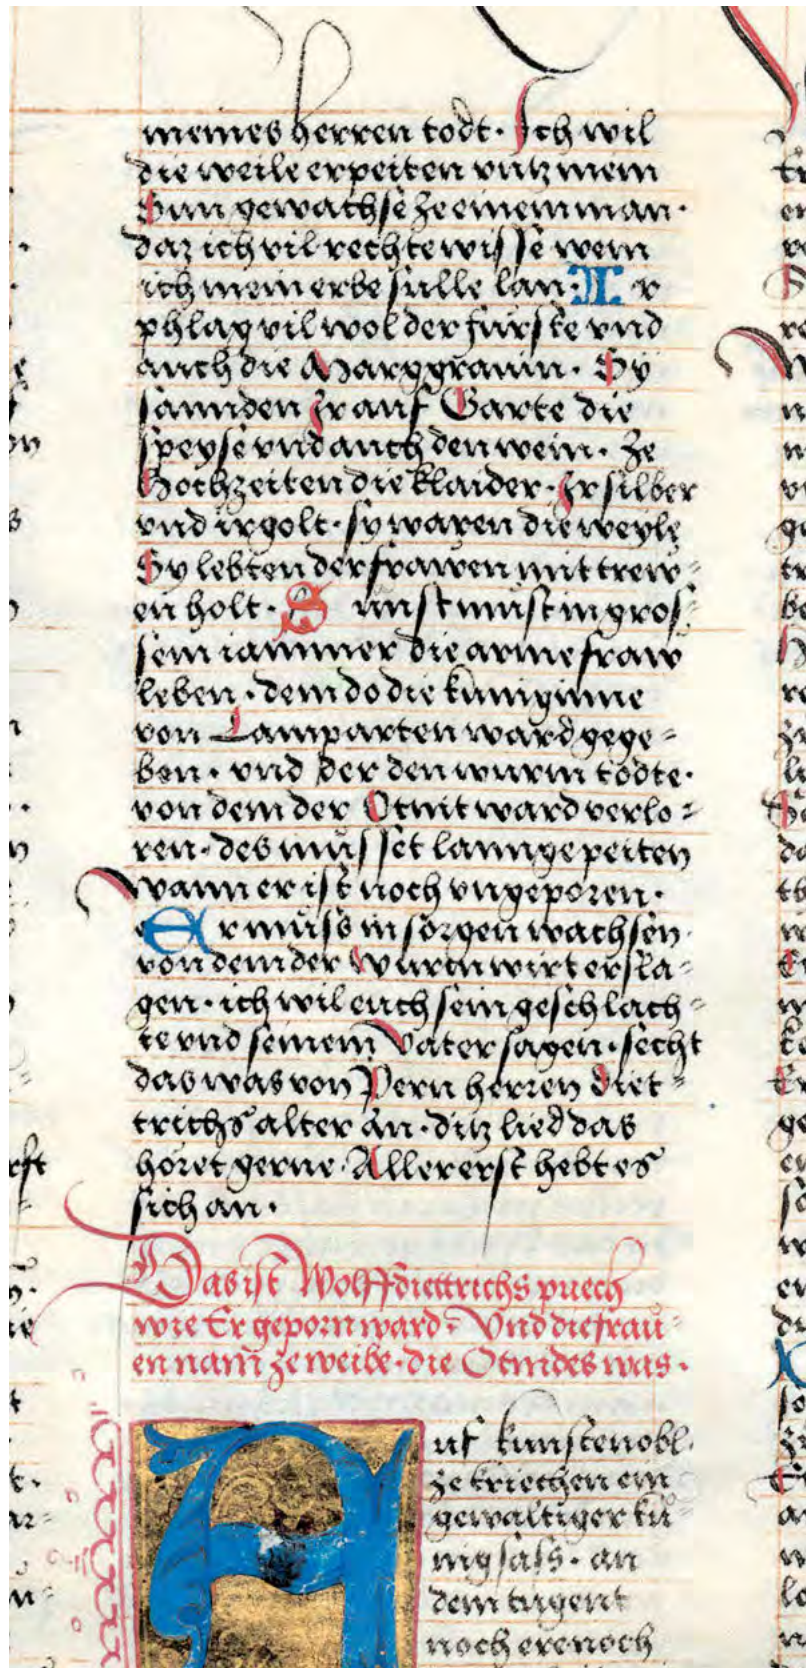 meines herren todt · Ich wil
die weile erpeiten vntz mein
Sun gewachse ze einem man ·
daz ich vil rechte wisse wem
ich mein erbe sulle lan · Ir
phlag vil wol der fürste vnd
auch die Marggrauin · Sy
sannden Ir auf Garte die
speyse vnd auch den wein · ze
Hochzeiten die klaider · Ir silber
vnd ir golt · sy waren die weyle
Sy lebten der frawen mit trew=
en holt · Sunst müst in gros=
sem iammer die arme fraw
leben · dem do die kuniginne
von Lamparten ward gege=
ben · vnd der den wurm todte ·
von dem der Otnit ward verlo=
ren · des müsset lanngepeiten
wann er ist noch vngeporen ·
Er müss in sorgen wachsen ·
von dem der Wurm wirt ersla=
gen · ich wil euch sein geschlach=
te vnd seinem Vater sagen · secht
das was von Pern herren Diet=
trichs alter an · ditz lied das
höret gerne · Allererst hebt es
sich an ·
Das ist Wolffdiettrichs puech
wie Er geporn ward · Vnd die frau=
en nam ze weibe · die Otnides was ·
Auf kunstenobl ·
ze kriechen ein
gewaltiger kü=
nig sass · an
dem tugent
noch ere noch